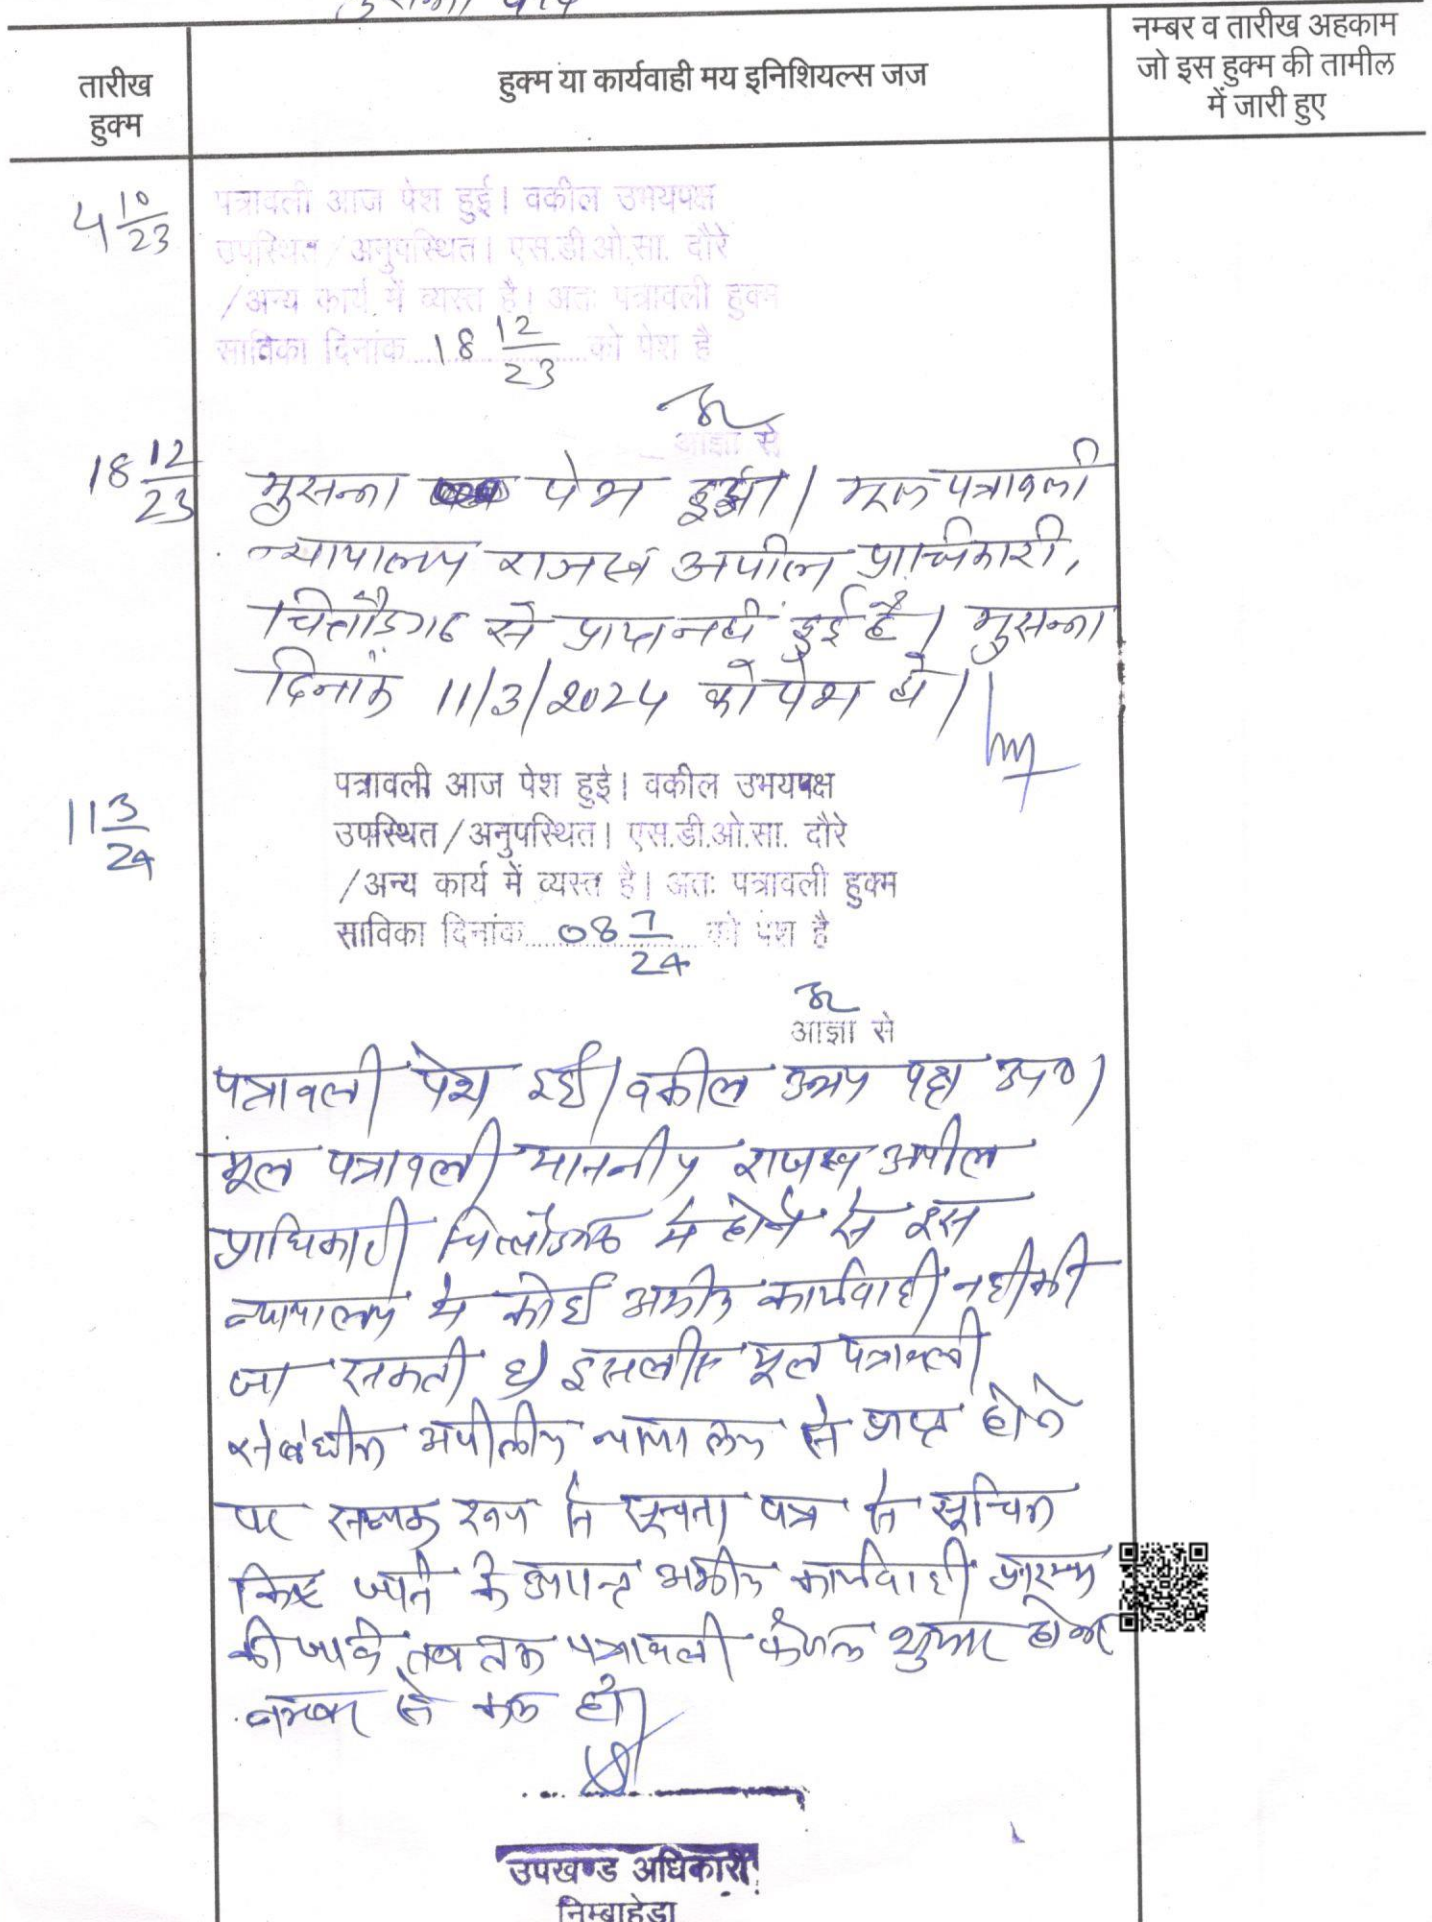 तारीख
हुक्म
हुक्म या कार्यवाही मय इनिशियल्स जज
नम्बर व तारीख अहकाम
जो इस हुक्म की तामील
में जारी हुए
4 10/23
पत्रावली आज पेश हुई। वकील उभयपक्ष
उपस्थित/अनुपस्थित। एस.डी.ओ.सा. दौरे
/अन्य कार्य में व्यस्त है। अतः पत्रावली हुक्म
साविका दिनांक 18 12/23 को पेश है
आज्ञा से
18 12/23
मुसन्ना पेश हुआ। मूल पत्रावली
न्यायालय राजस्व अपील प्राधिकारी,
चित्तौड़गढ से प्राप्त नहीं हुई है। मुसन्ना
दिनांक 11/3/2024 को पेश हो।
11 3/24
पत्रावली आज पेश हुई। वकील उभयपक्ष
उपस्थित/अनुपस्थित। एस.डी.ओ.सा. दौरे
/अन्य कार्य में व्यस्त है। अतः पत्रावली हुक्म
साविका दिनांक 08 7/24 को पेश है
आज्ञा से
पत्रावली पेश हुई। वकील उभय पक्ष उप०।
मूल पत्रावली माननीय राजस्व अपील
प्राधिकारी चित्तौडगढ मे होने से इस
न्यायालय मे कोई अग्रीम कार्यवाही नही की
जा सकती है। इसलीए मूल पत्रावली
संबंधीत अपीलीय न्यायालय से प्राप्त होने
पर रूप से सूचना पत्र से सूचित
किए जाने के उपरान्त अग्रीम कार्यवाही प्रारम्भ
की जावे तब तक पत्रावली फैसल शुमार होकर
नम्बर से कम हो।
उपखण्ड अधिकारी
निम्बाहेडा